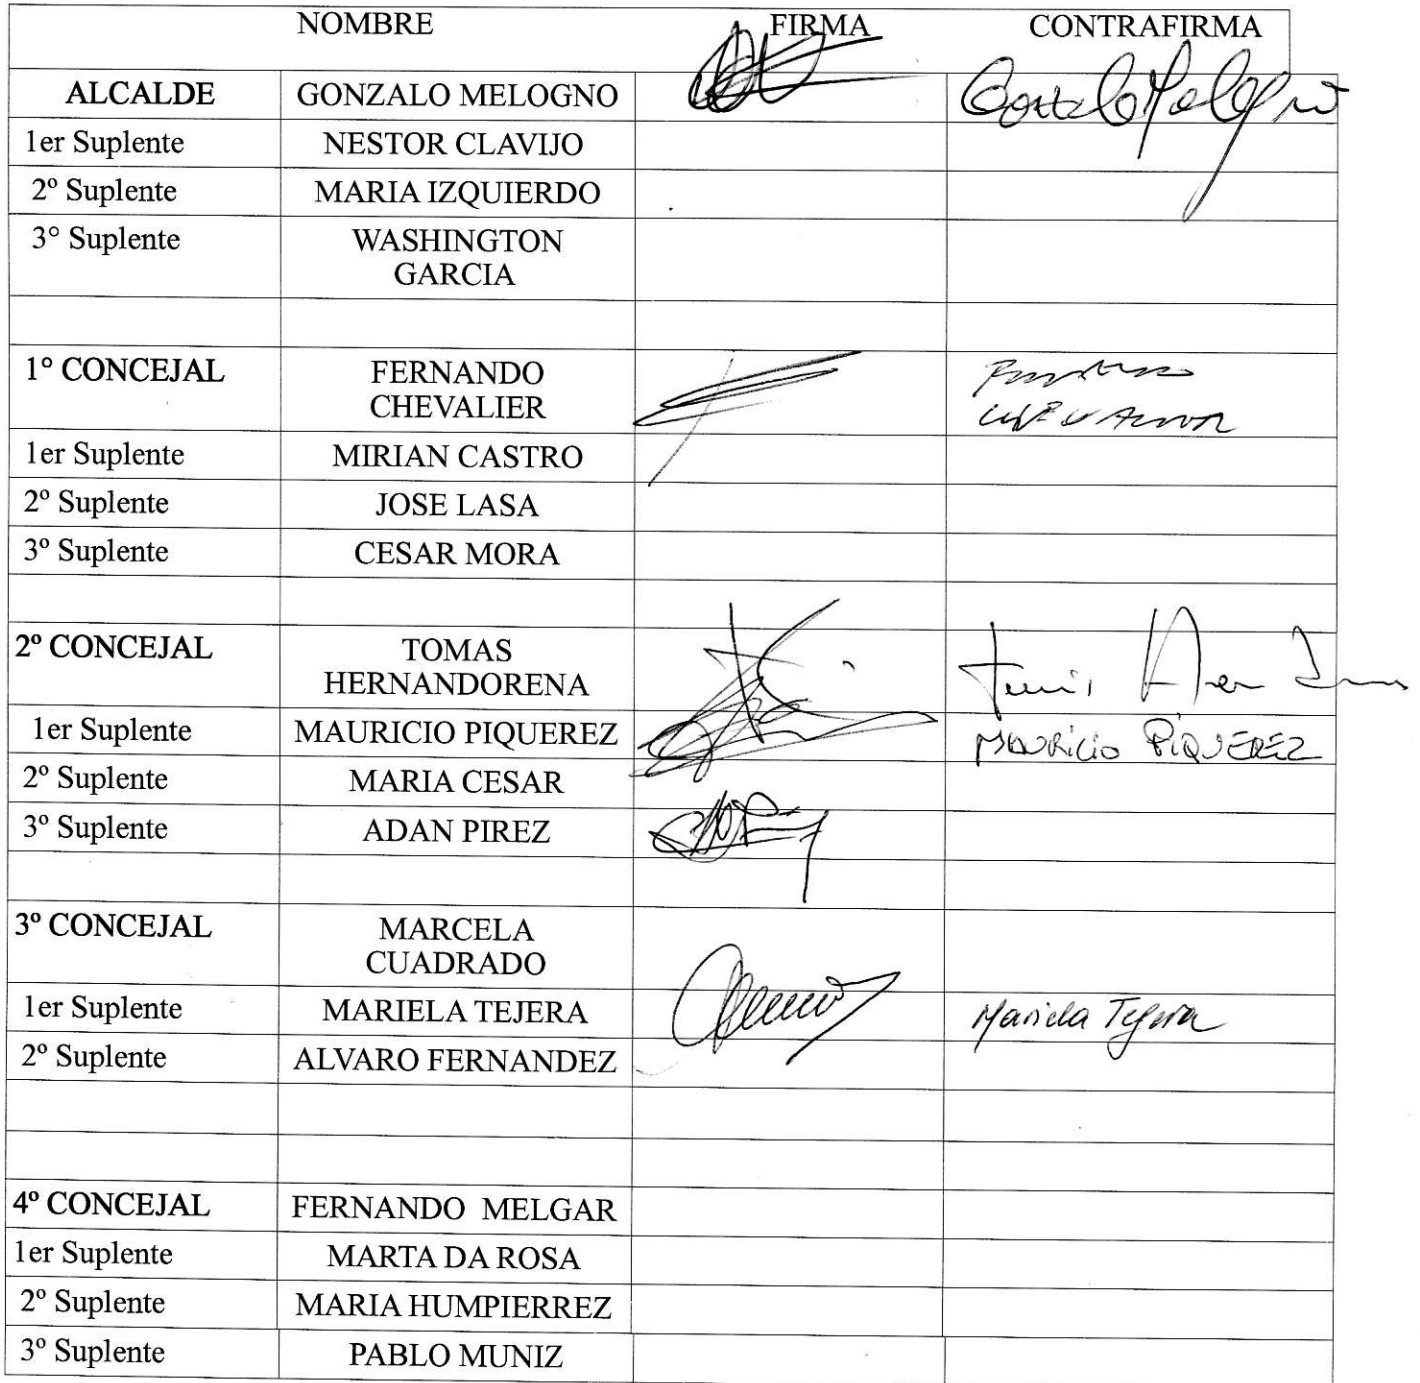 NOMBRE FIRMA CONTRAFIRMA
ALCALDE GONZALO MELOGNO Gonzalo Melogno
1er Suplente NESTOR CLAVIJO
2º Suplente MARIA IZQUIERDO
3° Suplente WASHINGTON
GARCIA
1° CONCEJAL FERNANDO
CHEVALIER
1er Suplente MIRIAN CASTRO
2º Suplente JOSE LASA
3º Suplente CESAR MORA
2º CONCEJAL TOMAS
HERNANDORENA
1er Suplente MAURICIO PIQUEREZ MAURICIO PIQUEREZ
2º Suplente MARIA CESAR
3º Suplente ADAN PIREZ
3º CONCEJAL MARCELA
CUADRADO
1er Suplente MARIELA TEJERA Mariela Tejera
2º Suplente ALVARO FERNANDEZ
4º CONCEJAL FERNANDO MELGAR
1er Suplente MARTA DA ROSA
2º Suplente MARIA HUMPIERREZ
3º Suplente PABLO MUNIZ